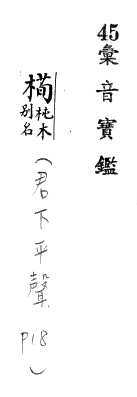 45彙音寶鑑
橁杶木別名
(君下平聲 P18)